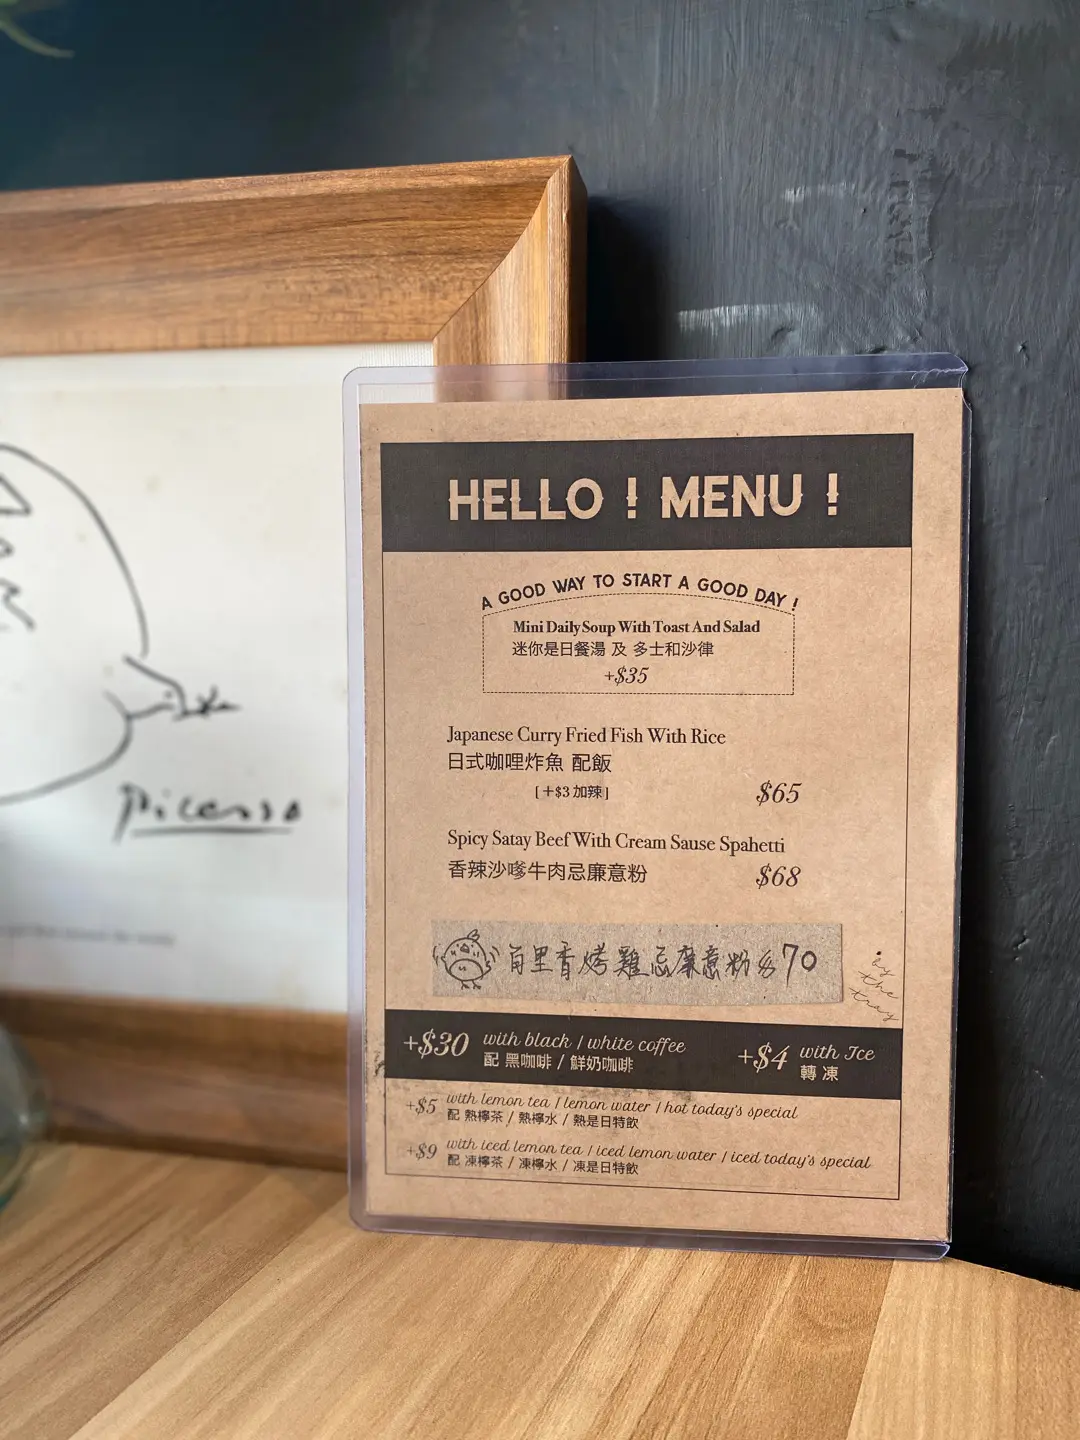 Picasso
HELLO ! MENU !
A GOOD WAY TO START A GOOD DAY !
Mini Daily Soup With Toast And Salad
迷你是日餐湯 及 多士和沙律
+$35
Japanese Curry Fried Fish With Rice
日式咖哩炸魚 配飯
[ +$3 加辣 ]
$65
Spicy Satay Beef With Cream Sause Spahetti
香辣沙嗲牛肉忌廉意粉
$68
百里香烤雞忌廉意粉 $70
by
the
tray
+$30 with black / white coffee
配 黑咖啡 / 鮮奶咖啡
+$4 with Ice
轉 凍
+$5 with lemon tea / lemon water / hot today's special
配 熱檸茶 / 熱檸水 / 熱是日特飲
+$9 with iced lemon tea / iced lemon water / iced today's special
配 凍檸茶 / 凍檸水 / 凍是日特飲